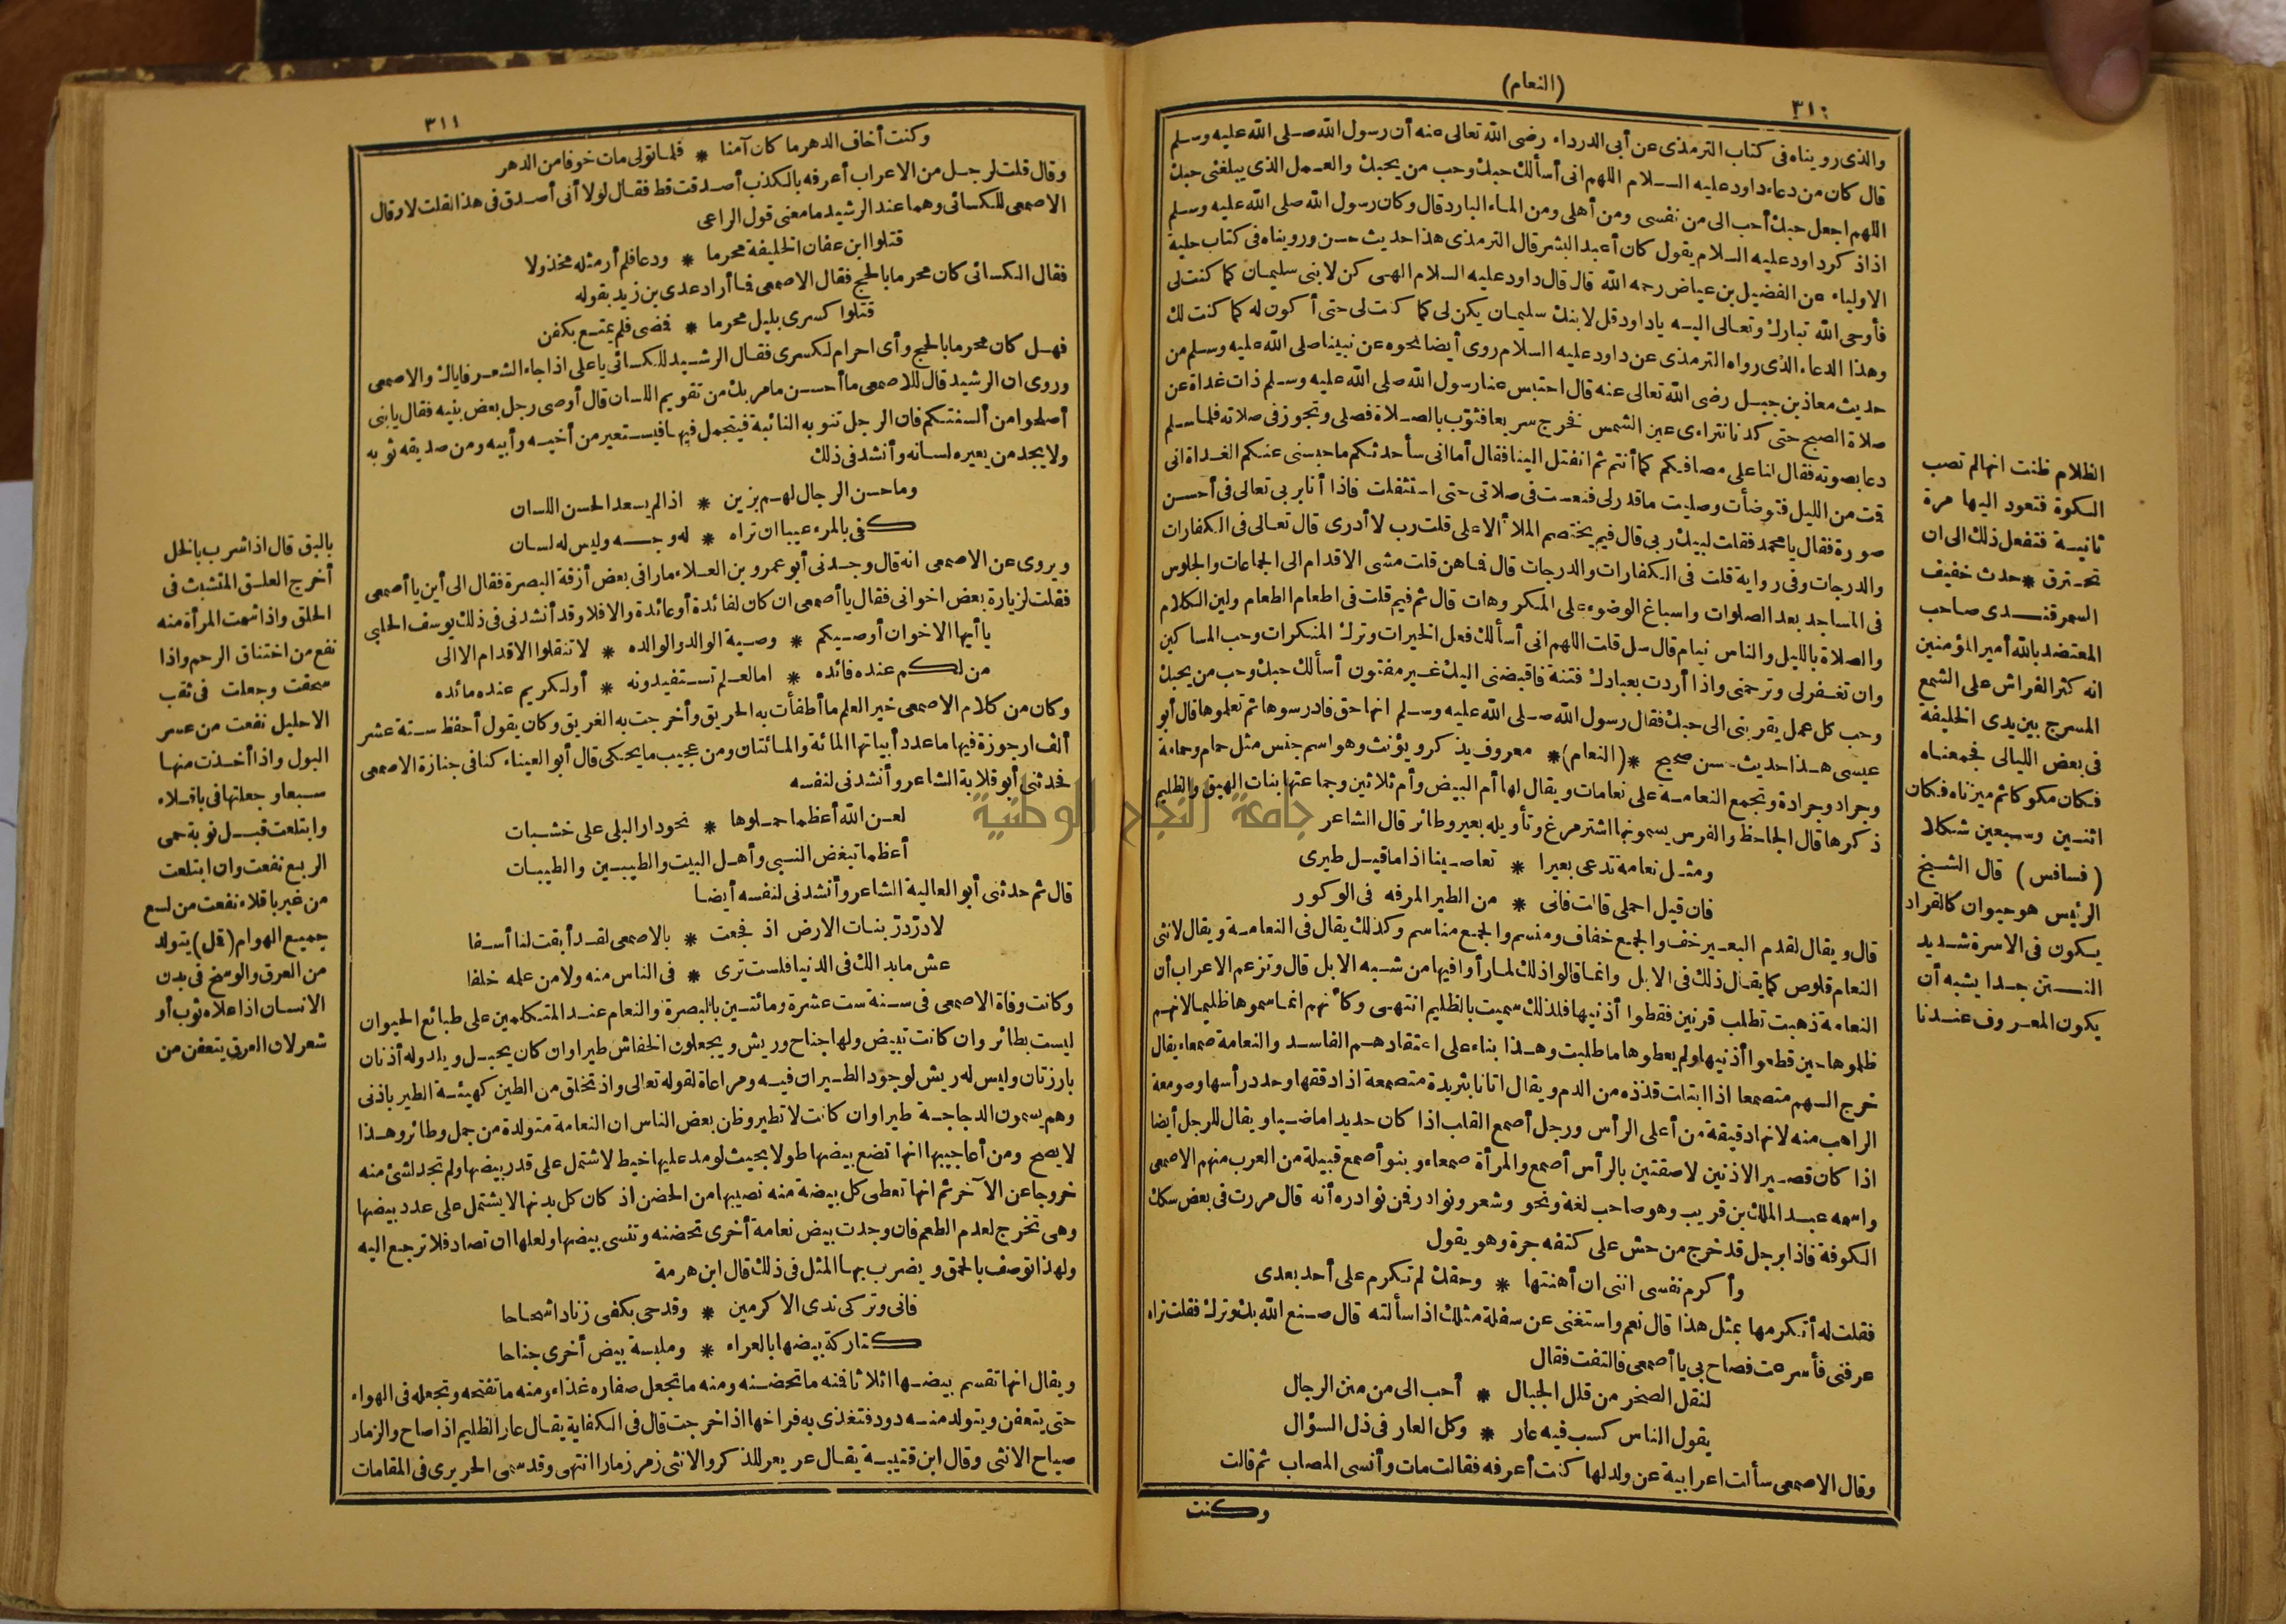 (النعام)
٣١٠
والذى رويناه فى كتاب الترمذى عن أبى الدرداء رضى الله تعالى عنه أن رسول الله صلى الله عليه وسلم
قال كان من دعاء داود عليه السلام اللهم انى أسألك حبك وحب من يحبك والعمل الذى يبلغنى حبك
اللهم اجعل حبك أحب الى من نفسى ومن أهلى ومن الماء البارد قال وكان رسول الله صلى الله عليه وسلم
اذا ذكر داود عليه السلام يقول كان أعبد البشر قال الترمذى هذا حديث حسن ورويناه فى كتاب حلية
الاولياء عن الفضيل بن عياض رحمه الله قال قال داود عليه السلام الهى كن لابنى سليمان كما كنت لى
فأوحى الله تبارك وتعالى اليه ياداود قل لابنك سليمان يكن لى كما كنت لى حتى أكون له كما كنت لك
وهذا الدعاء الذى رواه الترمذى عن داود عليه السلام روى أيضا نحوه عن نبينا صلى الله عليه وسلم من
حديث معاذ بن جبل رضى الله تعالى عنه قال احتبس عنا رسول الله صلى الله عليه وسلم ذات غداة عن
صلاة الصبح حتى كدنا نتراءى عين الشمس فخرج سريعا فثوّب بالصلاة فصلى وتجوز فى صلاته فلما سلم
دعا بصوته فقال لنا على مصافكم كما أنتم ثم انفتل الينا فقال أما انى سأحدثكم ما حبسنى عنكم الغداة انى
قمت من الليل فتوضأت وصليت ما قدر لى فنعست فى صلاتى حتى استثقلت فاذا أنا بربى تعالى فى أحسن
صورة فقال يا محمد فقلت لبيك ربى قال فيم يختصم الملأ الاعلى قلت رب لا أدرى قال تعالى فى الكفارات
والدرجات وفى رواية قلت فى الكفارات والدرجات قال فما هن قلت مشى الاقدام الى الجماعات والجلوس
فى المساجد بعد الصلوات واسباغ الوضوء على المكروهات قال ثم فيم قلت فى اطعام الطعام ولين الكلام
والصلاة بالليل والناس نيام قال سل قلت اللهم انى أسألك فعل الخيرات وترك المنكرات وحب المساكين
وان تغفر لى وترحمنى واذا أردت بعبادك فتنة فاقبضنى اليك غير مفتون أسألك حبك وحب من يحبك
وحب كل عمل يقربنى الى حبك فقال رسول الله صلى الله عليه وسلم انها حق فادرسوها ثم تعلموها قال أبو
عيسى هذا حديث حسن صحيح * (النعام) * معروف يذكر ويؤنث وهو اسم جنس مثل حمام وحمامة
وجراد وجرادة وتجمع النعامة على نعامات ويقال لها أم البيض وأم ثلاثين وجماعتها بنات الهيق والظليم
ذكرها قال الجاحظ والفرس يسمونها اشتر مرغ وتأويله بعير وطائر قال الشاعر
ومثل نعامة تدعى بعيرا * تعاصينا اذا ما قيل طيرى
فان قيل احملى قالت فانى * من الطير المرفه فى الوكور
قال ويقال لقدم البعير خف والجمع خفاف ومنسم والجمع مناسم وكذلك يقال فى النعامة ويقال لانثى
النعام قلوص كما يقال ذلك فى الابل وانما قالوا ذلك لما رأوا فيها من شبه الابل قال وتزعم الاعراب أن
النعامة ذهبت تطلب قرنين فقطعوا أذنيها فلذلك سميت بالظليم انتهى وكأنهم انما سموها ظليما لانهم
ظلموها حين قطعوا أذنيها ولم يعطوها ما طلبت وهذا بناء على اعتقادهم الفاسد والنعامة صمعاء يقال
خرج السهم متصمعا اذا ابتلت قذذه من الدم ويقال اتانا بثريدة متصمعة اذا دققها وحدد رأسها وصومعة
الراهب منه لانها دقيقة من أعلى الرأس ورجل أصمع القلب اذا كان حديدا ماضيا ويقال للرجل أيضا
اذا كان قصير الاذنين لاصقتين بالرأس أصمع والمرأة صمعاء وبنو أصمع قبيلة من العرب منهم الاصمعى
واسمه عبد الملك بن قريب وهو صاحب لغة ونحو وشعر ونوادر فمن نوادره أنه قال مررت فى بعض سكك
الكوفة فاذا برجل قد خرج من حش على كتفه جرة وهو يقول
وأكرم نفسى اننى ان أهنتها * وحقك لم تكرم على أحد بعدى
فقلت له أتكرمها بمثل هذا قال نعم واستغنى عن سفلة مثلك اذا سألته قال صنع الله بك وترك فقلت تراه
عرفنى فأسرعت فصاح بى يا أصمعى فالتفت فقال
لنقل الصخر من قلل الجبال * أحب الى من منن الرجال
يقول الناس كسب فيه عار * وكل العار فى ذل السؤال
وقال الاصمعى سألت اعرابية عن ولد لها كنت أعرفه فقالت مات وأنسى المصاب ثم قالت
وكنت
الظلام ظنت انها لم تصب
الكوة فتعود اليها مرة
ثانية فتفعل ذلك الى ان
تحترق * حدث خفيف
السمرقندى صاحب
المعتضد بالله أمير المؤمنين
انه كثر الفراش على الشمع
المسرج بين يدى الخليفة
فى بعض الليالى فجمعناه
فكان مكوكا ثم ميزناه فكان
اثنين وسبعين شكلا
(فسافس) قال الشيخ
الرئيس هو حيوان كالقراد
يكون فى الاسرة شديد
النتن جدا يشبه أن
يكون المعروف عندنا
٣١١
وكنت أخاف الدهر ما كان آمنا * فلما تولى مات خوفا من الدهر
وقال قلت لرجل من الاعراب أعرفه بالكذب أصدقت قط فقال لولا أنى أصدق فى هذا لقلت لا وقال
الاصمعى للكسائى وهما عند الرشيد ما معنى قول الراعى
قتلوا ابن عفان الخليفة محرما * ودعا فلم أر مثله مخذولا
فقال الكسائى كان محرما بالحج فقال الاصمعى فما أراد عدى بن زيد بقوله
قتلوا كسرى بليل محرما * فمضى فلم يمتع بكفن
فهل كان محرما بالحج وأى احرام لكسرى فقال الرشيد للكسائى يا على اذا جاء الشعر فاياك والاصمعى
وروى ان الرشيد قال للاصمعى ما أحسن ما مر بك من تقويم اللسان قال أوصى رجل بعض بنيه فقال يا بنى
أصلحوا من ألسنتكم فان الرجل تنوبه النائبة فيتجمل فيها فيستعير من أخيه وأبيه ومن صديقه ثوبه
ولا يجد من يعيره لسانه وأنشد فى ذلك
وما حسن الرجال لهم بزين * اذا لم يسعد الحسن اللسان
كفى بالمرء عيبا ان تراه * له وجه وليس له لسان
ويروى عن الاصمعى انه قال وجدنى أبو عمرو بن العلاء مارا فى بعض أزقة البصرة فقال الى أين يا أصمعى
فقلت لزيارة بعض اخوانى فقال يا أصمعى ان كان لفائدة أو عائدة والا فلا وقد أنشدنى فى ذلك يوسف الحلبى
يا أيها الاخوان أوصيكم * وصية الوالد والوالده * لا تنقلوا الاقدام الا الى
من لكم عنده فائده * اما لعلم تستفيدونه * أو لكريم عنده مائده
وكان من كلام الاصمعى خير العلم ما أطفأت به الحريق وأخرجت به الغريق وكان يقول أحفظ ستة عشر
ألف ارجوزة فيها ما عدد أبياتها المائة والمائتان ومن عجيب ما يحكى قال أبو العيناء كنا فى جنازة الاصمعى
فحدثنى أبو قلابة الشاعر وأنشدنى لنفسه
لعن الله أعظما حملوها * نحو دار البلى على خشبات
أعظما تبغض النبى وأهل البيت والطيبين والطيبات
قال ثم حدثنى أبو العالية الشاعر وأنشدنى لنفسه أيضا
لا درّ درّ بنات الارض اذ فجعت * بالاصمعى لقد أبقت لنا أسفا
عش ما بدا لك فى الدنيا فلست ترى * فى الناس منه ولا من علمه خلفا
وكانت وفاة الاصمعى فى سنة ست عشرة ومائتين بالبصرة والنعام عند المتكلمين على طبائع الحيوان
ليست بطائر وان كانت تبيض ولها جناح وريش ويجعلون الخفاش طيرا وان كان يحبل ويلد وله أذنان
بارزتان وليس له ريش لوجود الطيران فيه ومراعاة لقوله تعالى واذ تخلق من الطين كهيئة الطير باذنى
وهم يسمون الدجاجة طيرا وان كانت لا تطير وظن بعض الناس ان النعامة متولدة من جمل وطائر وهذا
لا يصح ومن أعاجيبها انها تضع بيضها طولا بحيث لو مد عليها خيط لاشتمل على قدر بيضها ولم تجد لشئ منه
خروجا عن الآخر ثم انها تعطى كل بيضة منه نصيبها من الحضن اذ كان كل بدنها لا يشتمل على عدد بيضها
وهى تخرج لعدم الطعم فان وجدت بيض نعامة أخرى تحضنه وتنسى بيضها ولعلها ان تصاد فلا ترجع اليه
ولهذا توصف بالحمق ويضرب بها المثل فى ذلك قال ابن هرمة
فانى وتركى ندى الاكرمين * وقدحى بكفى زنادا شحاحا
كتاركة بيضها بالعراء * وملبسة بيض أخرى جناحا
ويقال انها تقسم بيضها اثلاثا فمنه ما تحضنه ومنه ما تجعل صفاره غذاء ومنه ما تفتحه وتجعله فى الهواء
حتى يتعفن ويتولد منه دود فتغذى به فراخها اذا خرجت قال فى الكفاية يقال عار الظليم اذا صاح والزمار
صياح الانثى وقال ابن قتيبة يقال عر يعر للذكر والانثى زمر زمارا انتهى وقد سمى الحريرى فى المقامات
بالبق قال اذا شرب بالخل
أخرج العلق المتشبث فى
الحلق واذا شمت المرأة منه
نفع من اختناق الرحم واذا
سحقت وجعلت فى ثقب
الاحليل نفعت من عسر
البول واذا أخذت منها
سبعا وجعلتها فى باقلاء
وابتلعت قبل نوبة حمى
الربع نفعت وان ابتلعت
من غير باقلاء نفعت من لسع
جميع الهوام (قل) يتولد
من العرق والوسخ فى بدن
الانسان اذا علاه ثوب أو
شعر لان العرق يتعفن من
جامعة النجاح الوطنية